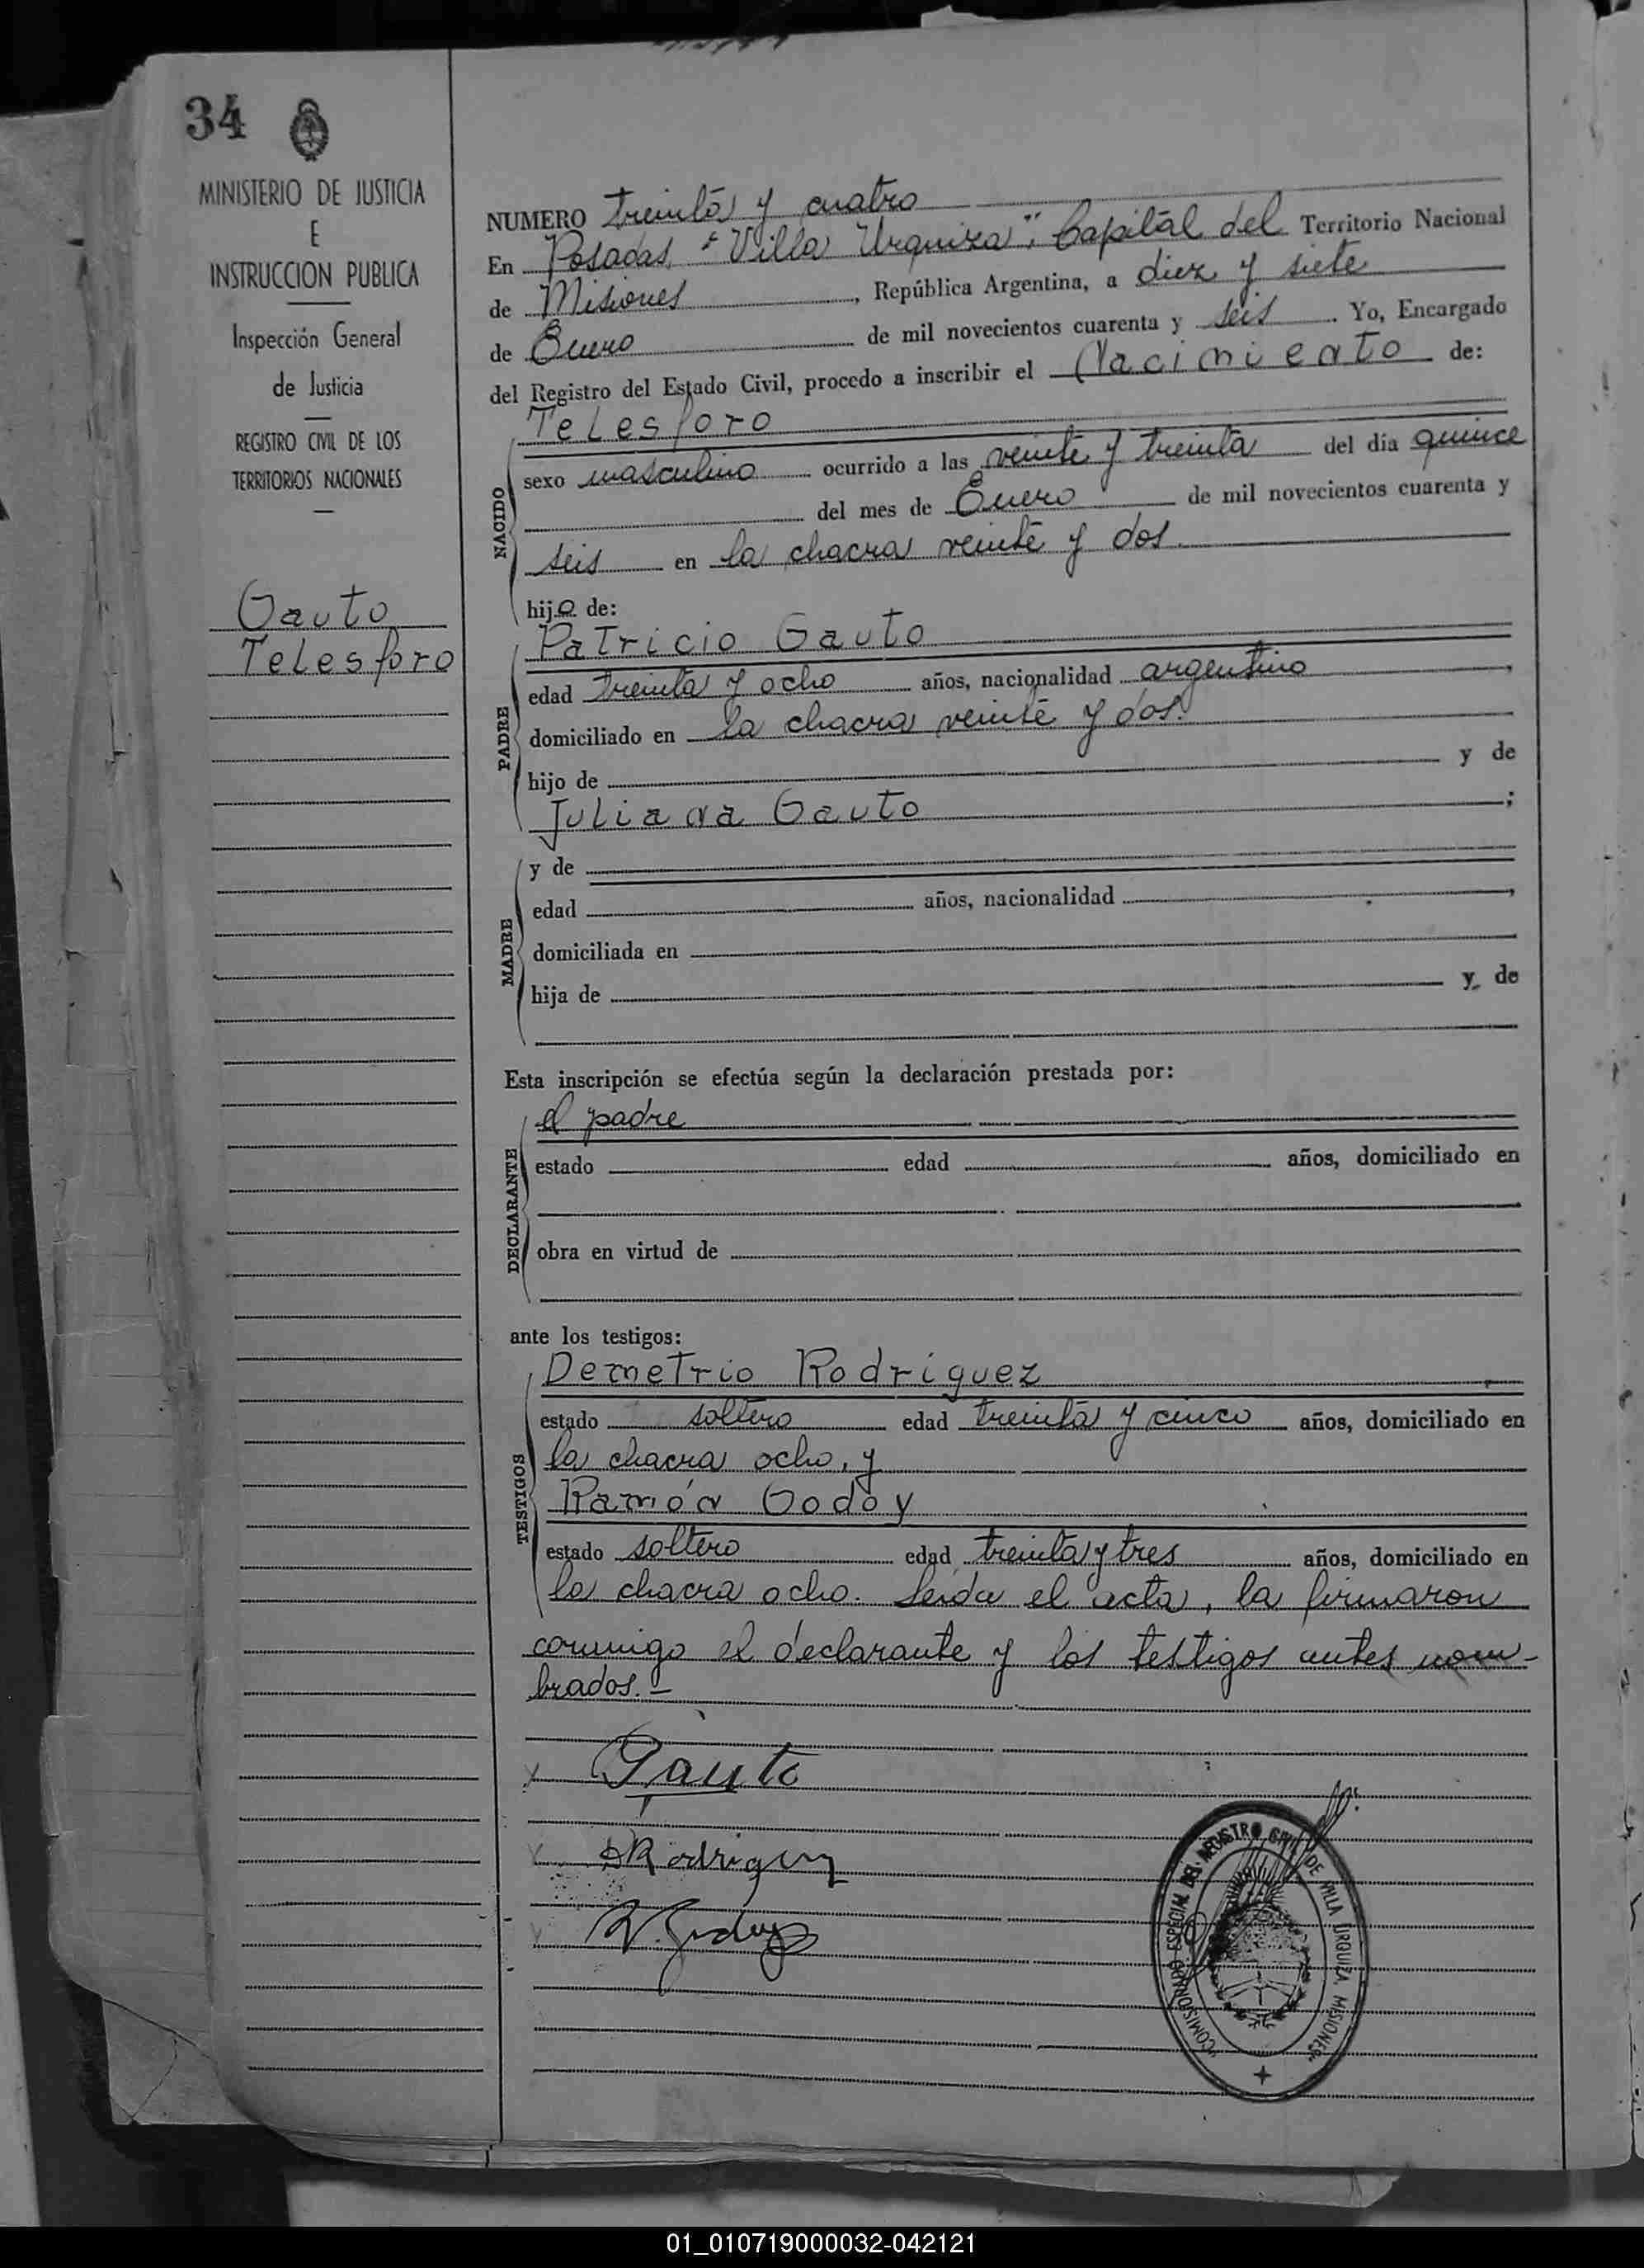 34
MINISTERIO DE JUSTICIA
E
INSTRUCCION PUBLICA
Inspección General
de Justicia
REGISTRO CIVIL DE LOS
TERRITORIOS NACIONALES
Gauto
Telesforo
NUMERO treinta y cuatro
En Posadas, "Villa Urquiza", Capital del Territorio Nacional
de Misiones, República Argentina, a diez y siete
de Enero de mil novecientos cuarenta y seis. Yo, Encargado
del Registro del Estado Civil, procedo a inscribir el Nacimiento de:
Telesforo
NACIDO
sexo masculino ocurrido a las veinte y treinta del día quince
del mes de Enero de mil novecientos cuarenta y
seis en la chacra veinte y dos.
hijo de:
Patricio Gauto
PADRE
edad treinta y ocho años, nacionalidad argentino,
domiciliado en la chacra veinte y dos.
hijo de y de
Juliana Gauto;
MADRE
y de
edad años, nacionalidad,
domiciliada en
hija de y de
Esta inscripción se efectúa según la declaración prestada por:
DECLARANTE
el padre
estado edad años, domiciliado en
obra en virtud de
ante los testigos:
TESTIGOS
Demetrio Rodriguez
estado soltero edad treinta y cinco años, domiciliado en
la chacra ocho, y
Ramón Godoy
estado soltero edad treinta y tres años, domiciliado en
la chacra ocho. Leída el acta, la firmaron
conmigo el declarante y los testigos antes nom-
brados.-
x Gauto
x DRodriguez
x R. Godoy
COMISIONADO ESPECIAL DEL REGISTRO CIVIL DE VILLA URQUIZA, MISIONES
01_010719000032-042121